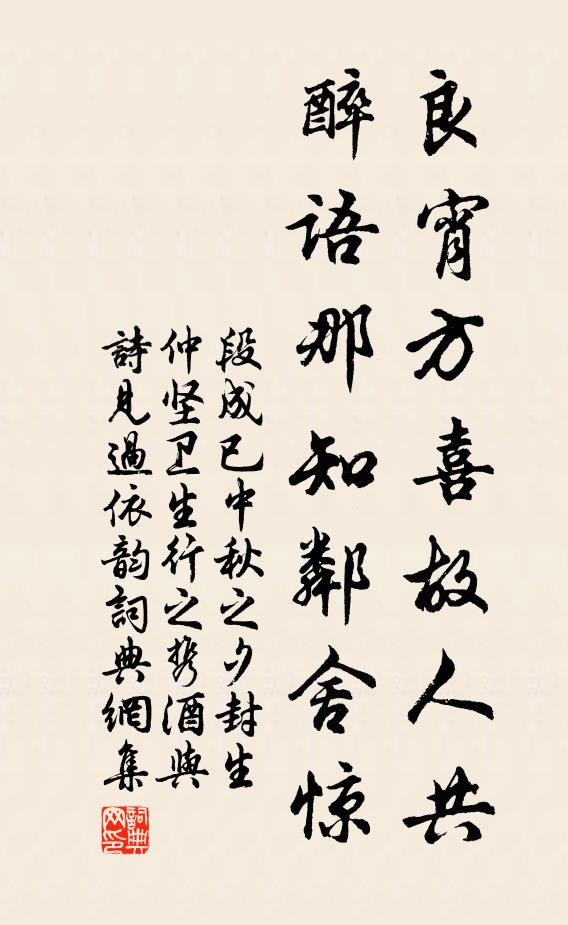 良宵方喜故人共
醉语那知鄰舍惊
段成已中秋之夕封生
仲坚卫生行之携酒與
詩見過依韵詞典網集
詞典
网印